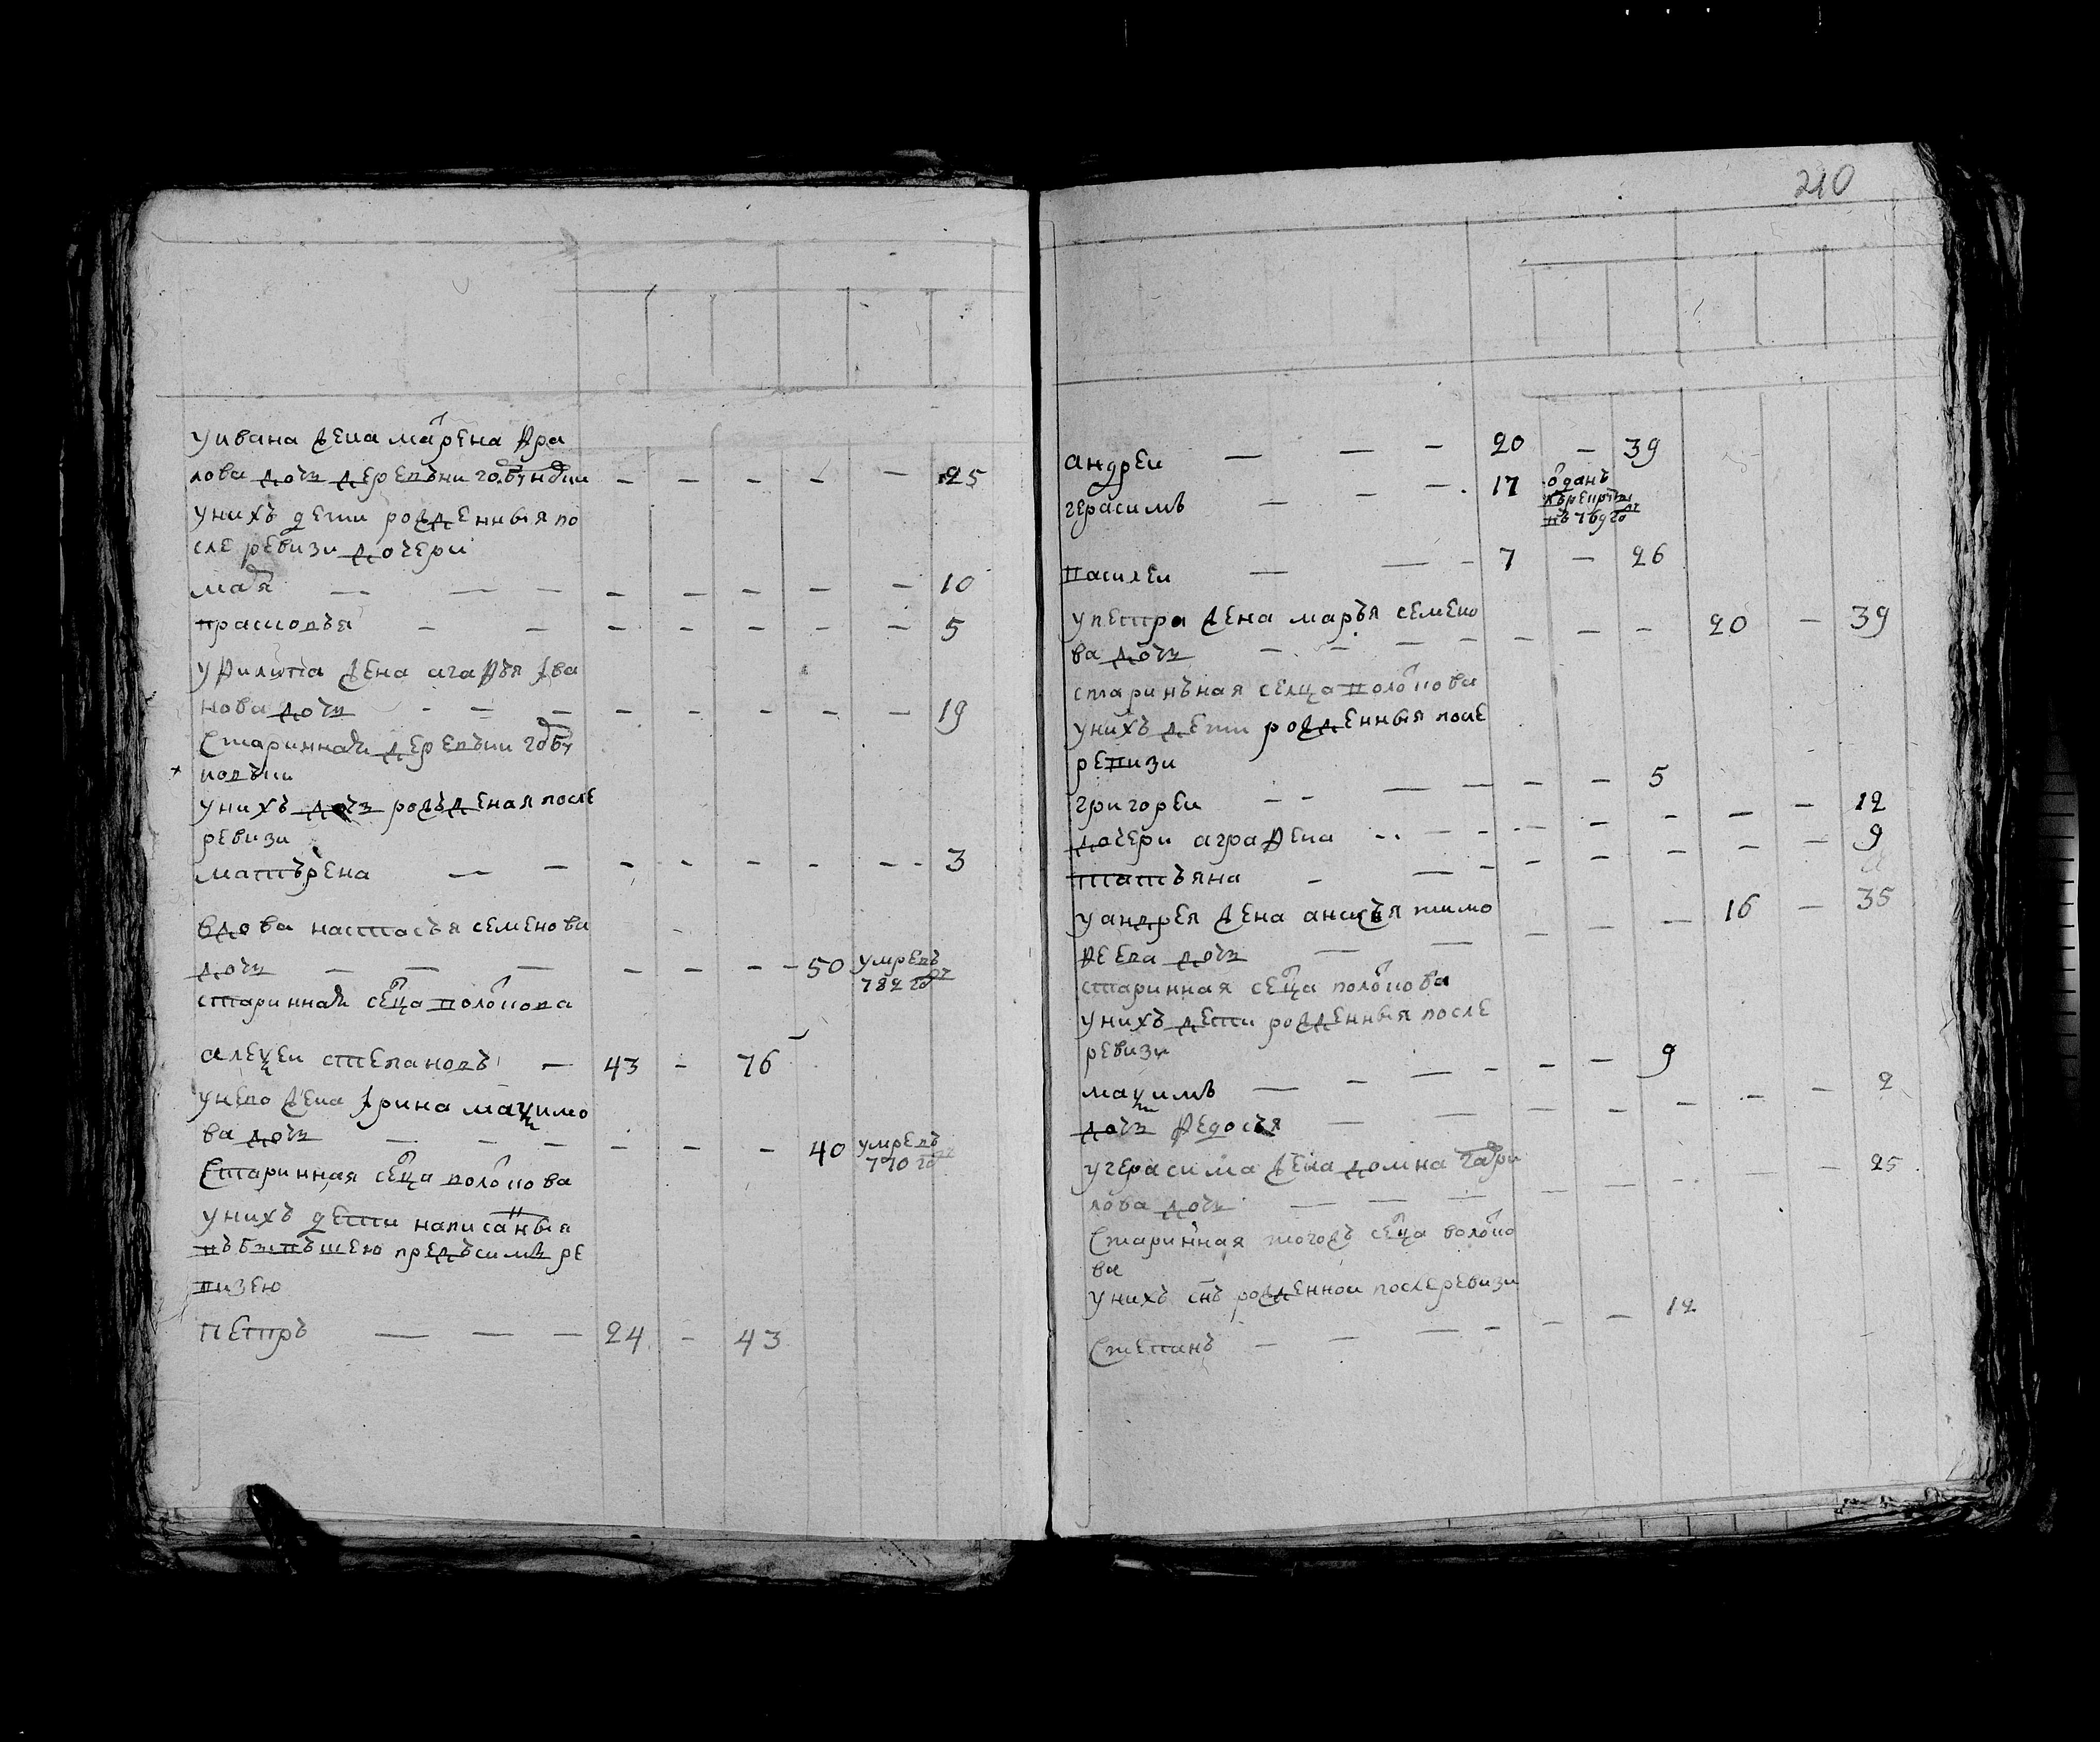 уивана жена марена фра
лова дочь деревъни
25
унихъ дети рожденныя по
сле ревизи дочери
маѳя
10
прасковья
5
уфилипа жена агафья ива
нова дочь
19
старинная деревъни
унихъ дочь рожъденая после
ревизи
матърена
3
вдова настасья семенова
дочь
50 умре
782 го
старинная селца
алексеи степановъ
43 76
унево жена ирина максимо
ва дочь
40 умре
770 го
старинная селца
унихъ дети написаныя
въ предъ симъ ре
визею
петръ
24 43
210
андреи
20 39
герасимъ
17 отданъ
въ рекруты
въ 769 го
василеи
7 26
упетра жена марья семено
ва дочь
20 39
старинъная селца
унихъ дети рожденныя после
ревизи
григореи
5
дочери аграфена
12
татьяна
9
уандрея жена анисья тимо
феева дочь
16 35
старинная селца
унихъ дети рожденныя после
ревизи
максимъ
9
дочь федосья
2
угерасима жена домна гаври
лова дочь
25
старинная тогожъ селца
ва
унихъ снъ рожденнои после ревизи
степанъ
12